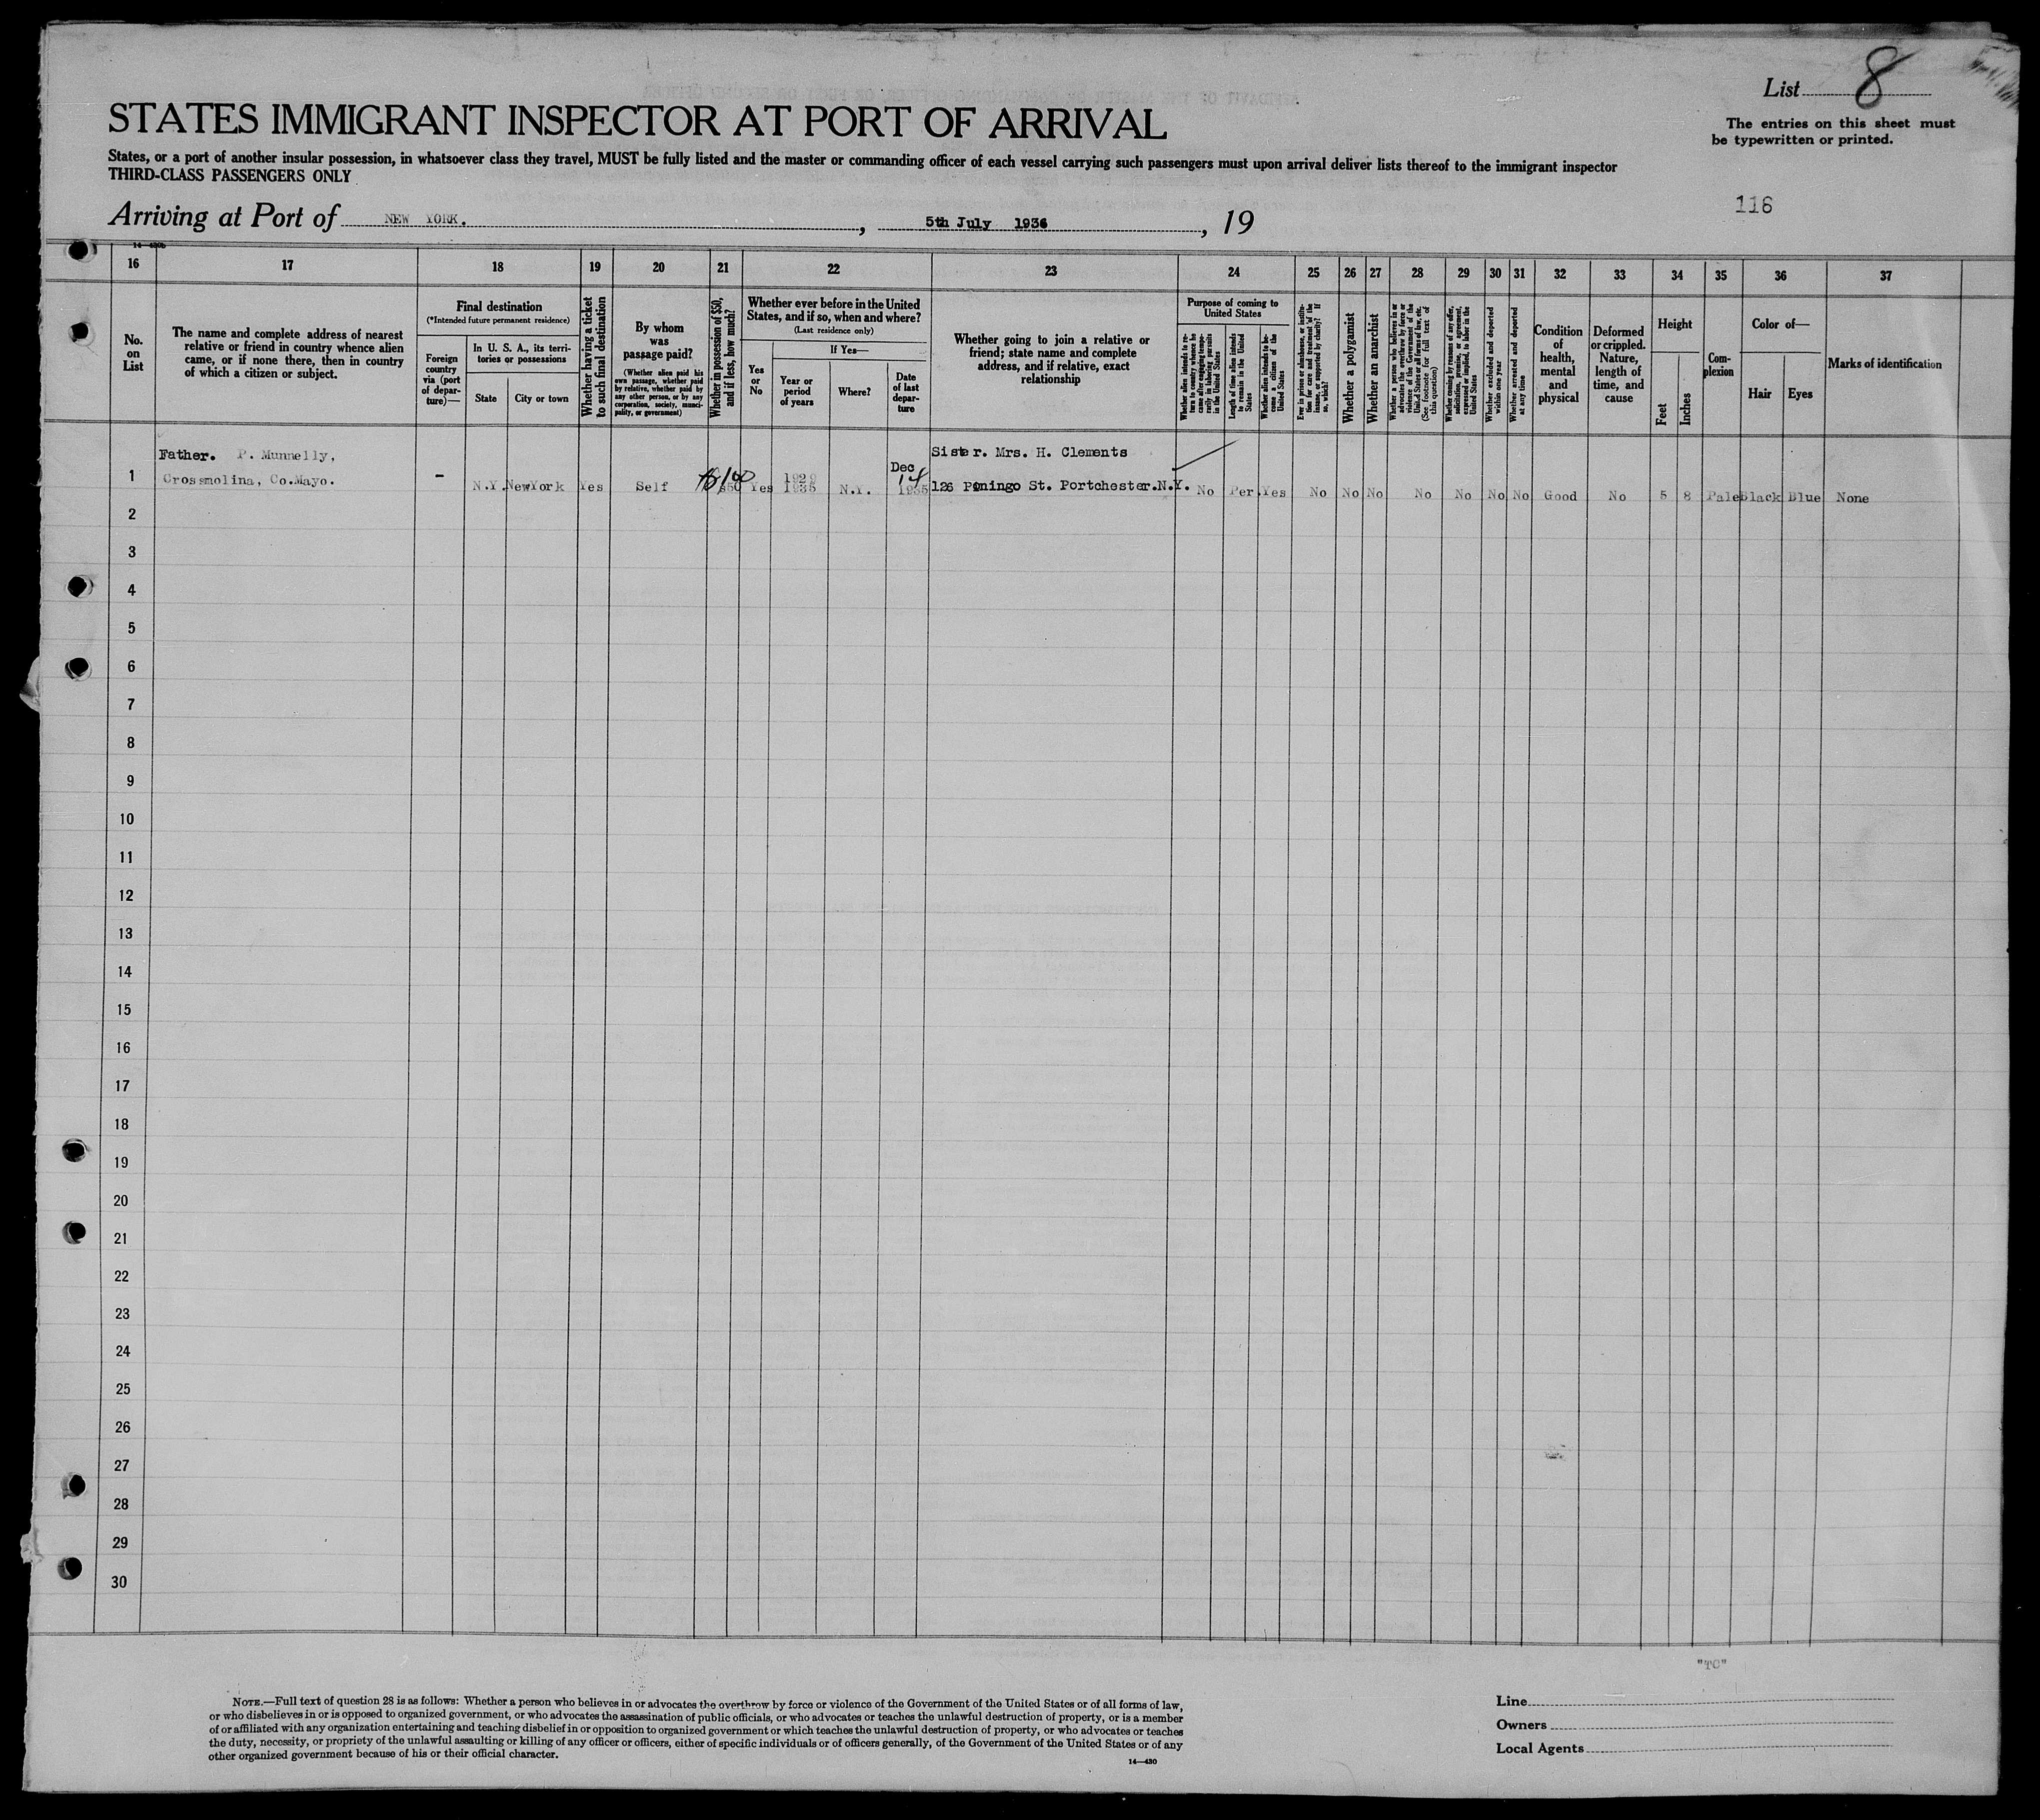 List 8
STATES IMMIGRANT INSPECTOR AT PORT OF ARRIVAL
The entries on this sheet must
be typewritten or printed.
States, or a port of another insular possession, in whatsoever class they travel, MUST be fully listed and the master or commanding officer of each vessel carrying such passengers must upon arrival deliver lists thereof to the immigrant inspector
THIRD-CLASS PASSENGERS ONLY
116
Arriving at Port of NEW YORK. , 5th July 1936 , 19
14—430b
16 17 18 19 20 21 22 23 24 25 26 27 28 29 30 31 32 33 34 35 36 37
No.
on
List
The name and complete address of nearest
relative or friend in country whence alien
came, or if none there, then in country
of which a citizen or subject.
Final destination
(*Intended future permanent residence)
Foreign
country
via (port
of depar-
ture)—
In U. S. A., its terri-
tories or possessions
State
City or town
Whether having a ticket
to such final destination
By whom
was
passage paid?
(Whether alien paid his
own passage, whether paid
by relative, whether paid by
any other person, or by any
corporation, society, munici-
pality, or government)
Whether in possession of $50,
and if less, how much?
Whether ever before in the United
States, and if so, when and where?
(Last residence only)
Yes
or
No
If Yes—
Year or
period
of years
Where?
Date
of last
depar-
ture
Whether going to join a relative or
friend; state name and complete
address, and if relative, exact
relationship
Purpose of coming to
United States
Whether alien intends to re-
turn to country whence he
came after engaging tempo-
rarily in laboring pursuits
in the United States
Length of time alien intends
to remain in the United
States
Whether alien intends to be-
come a citizen of the
United States
Ever in prison or almshouse, or institu-
tion for care and treatment of the
insane, or supported by charity? If
so, which?
Whether a polygamist
Whether an anarchist
Whether a person who believes in or
advocates the overthrow by force or
violence of the Government of the
United States or all forms of law, etc.
(See footnote for full text of
this question)
Whether coming by reason of any offer,
solicitation, promise, or agreement,
expressed or implied, to labor in the
United States
Whether excluded and deported
within one year
Whether arrested and deported
at any time
Condition
of
health,
mental
and
physical
Deformed
or crippled.
Nature,
length of
time, and
cause
Height
Feet
Inches
Com-
plexion
Color of—
Hair
Eyes
Marks of identification
Father. P. Munnelly, Sister. Mrs. H. Clements
1 Crossmolina, Co.Mayo. – N.Y. NewYork Yes Self $50 Yes 1929 1935 N.Y. Dec 14 1935 126 Poningo St. Portchester.N.Y. No Per. Yes No No No No No No No Good No 5 8 Pale Black Blue None
2
3
4
5
6
7
8
9
10
11
12
13
14
15
16
17
18
19
20
21
22
23
24
25
26
27
28
29
30
"TC"
NOTE.—Full text of question 28 is as follows: Whether a person who believes in or advocates the overthrow by force or violence of the Government of the United States or of all forms of law,
or who disbelieves in or is opposed to organized government, or who advocates the assassination of public officials, or who advocates or teaches the unlawful destruction of property, or is a member
of or affiliated with any organization entertaining and teaching disbelief in or opposition to organized government or which teaches the unlawful destruction of property, or who advocates or teaches
the duty, necessity, or propriety of the unlawful assaulting or killing of any officer or officers, either of specific individuals or of officers generally, of the Government of the United States or of any
other organized government because of his or their official character.
14—430
Line
Owners
Local Agents